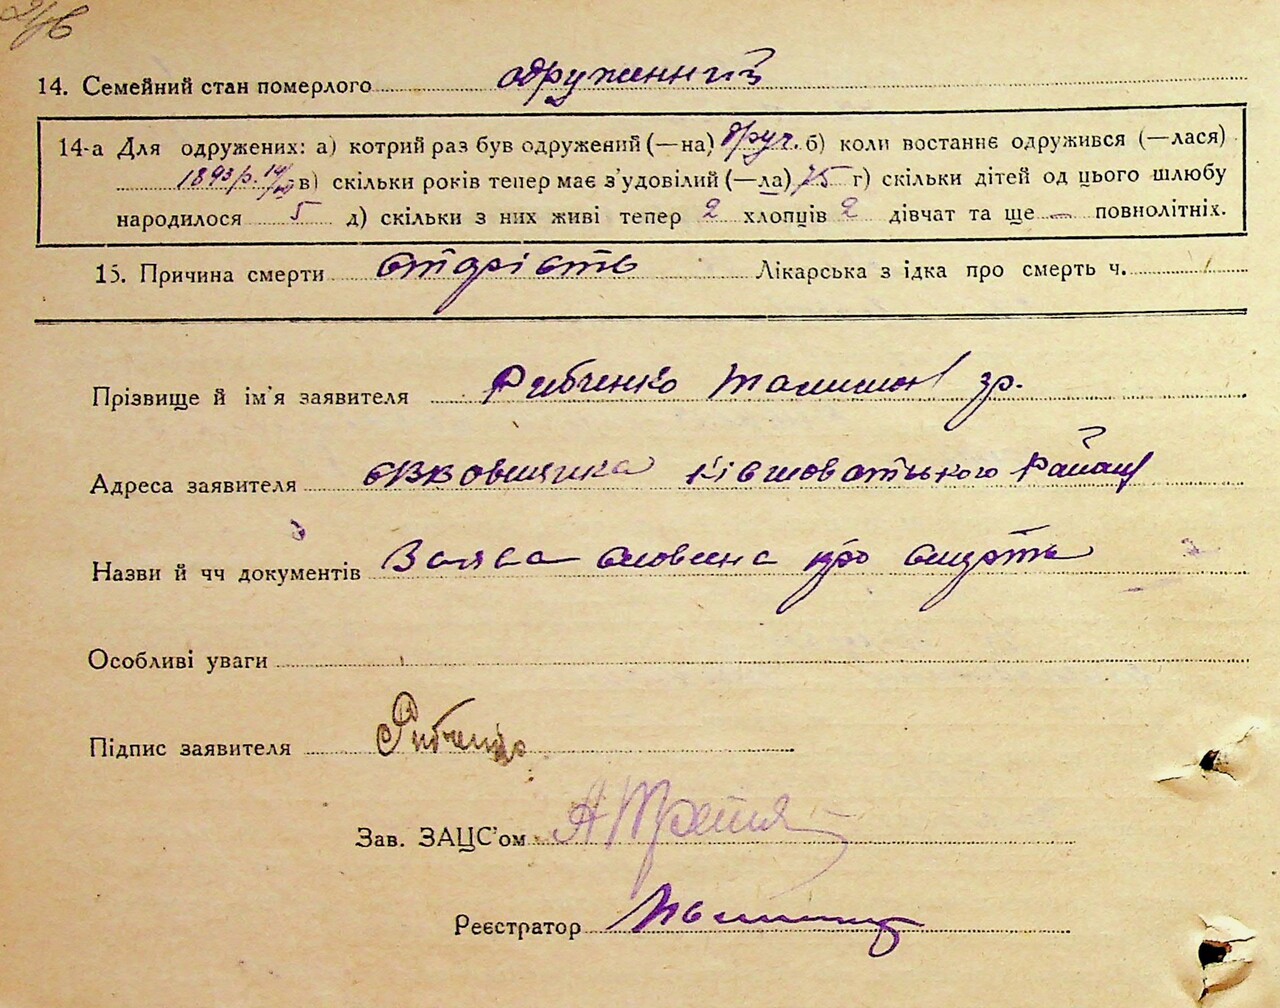 14. Семейний стан померлого одруженний
14-а Для одружених: а) котрий раз був одружений (—на) друг. б) коли востаннє одружився (—лася)
1893 р. в) скільки років тепер має з'удовілий (—ла) 75 г) скільки дітей од цього шлюбу
народилося 5 д) скільки з них живі тепер 2 хлопців 2 дівчат та ще — повнолітніх.
15. Причина смерти старість Лікарська з ідка про смерть ч.
Прізвище й ім'я заявителя Рибченко гр.
Адреса заявителя Ківшоватського району
Назви й чч документів Заява словесна про смерть
Особливі уваги
Підпис заявителя Рибченко
Зав. ЗАЦС'ом
Реєстратор